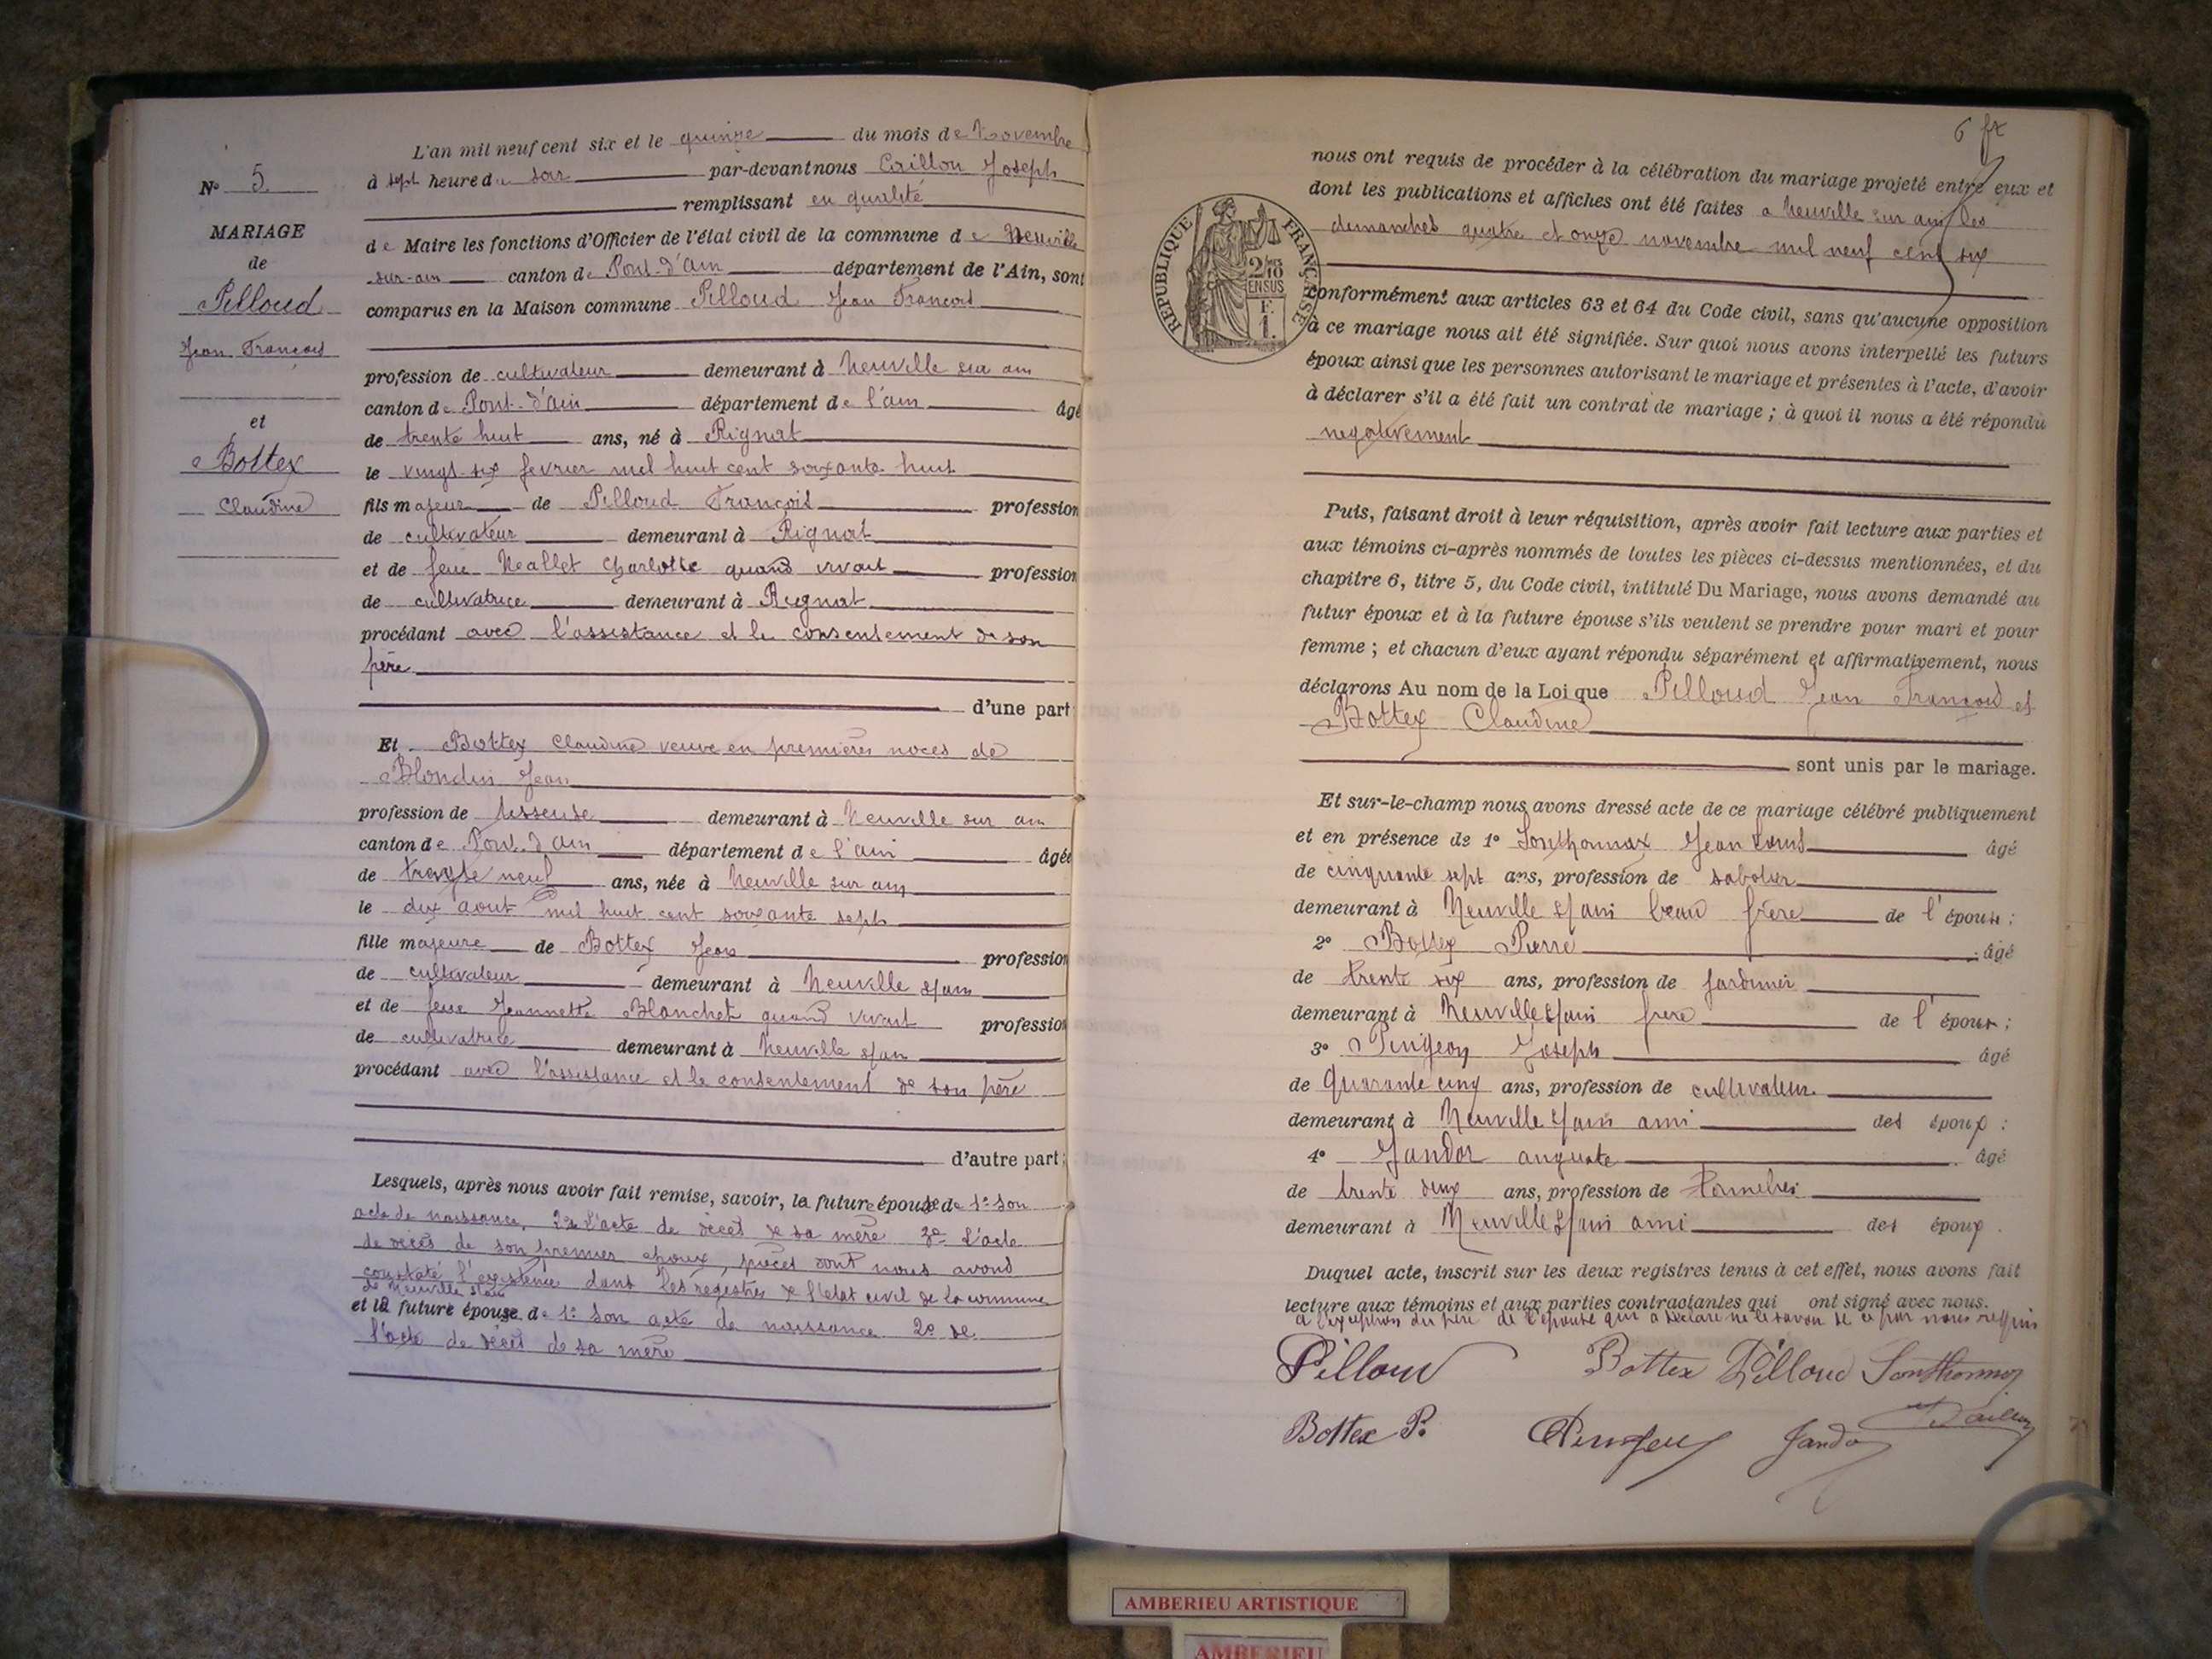 N° 5
MARIAGE
de
Pilloud
Jean François
et
Bottex
Claudine
L'an mil neuf cent six et le quinze du mois de Novembre
à sept heure du soir par-devant nous Caillon Joseph
remplissant en qualité
de Maire les fonctions d'Officier de l'état civil de la commune de Neuville
sur-ain canton de Pont-d'Ain département de l'Ain, sont
comparus en la Maison commune Pilloud Jean François
profession de cultivateur demeurant à Neuville sur ain
canton de Pont-d'Ain département de l'ain âgé
de trente huit ans, né à Rignat
le vingt-six fevrier mil huit cent soixante huit
fils majeur de Pilloud François profession
de cultivateur demeurant à Rignat
et de feue Charlotte quand vivait profession
de cultivatrice demeurant à Rignat
procédant avec l'assistance et le consentement de son
père
d'une part
Et Bottex Claudine veuve en premières noces de
Blondin Jean
profession de tisseuse demeurant à Neuville sur ain
canton de Pont-d'ain département de l'ain âgée
de trente neuf ans, née à Neuville sur ain
le dix aout mil huit cent soixante sept
fille majeure de Bottex Jean profession
de cultivateur demeurant à Neuville s/ain
et de feue Jeannette Blanchet quand vivait profession
de cultivatrice demeurant à Neuville s/ain
procédant avec l'assistance et le consentement de son père
d'autre part;
Lesquels, après nous avoir fait remise, savoir, la future épouse de 1° son
acte de naissance, 2° l'acte de décès de sa mère 3° L'acte
de décès de son premier époux, pièces dont nous avons
constaté l'existence dans les registres de l'état civil de la commune
de Neuville s/ain
et le future épouse de 1° Son acte de naissance 2° de
l'acte de décès de sa mère
6 fx
nous ont requis de procéder à la célébration du mariage projeté entre eux et
dont les publications et affiches ont été faites a Neuville sur ain les
dimanches quatre et onze novembre mil neuf cent six
RÉPUBLIQUE FRANÇAISE
2/10 EN SUS
F. 1.
conformément aux articles 63 et 64 du Code civil, sans qu'aucune opposition
à ce mariage nous ait été signifiée. Sur quoi nous avons interpellé les futurs
époux ainsi que les personnes autorisant le mariage et présentes à l'acte, d'avoir
à déclarer s'il a été fait un contrat de mariage; à quoi il nous a été répondu
negativement
Puis, faisant droit à leur réquisition, après avoir fait lecture aux parties et
aux témoins ci-après nommés de toutes les pièces ci-dessus mentionnées, et du
chapitre 6, titre 5, du Code civil, intitulé Du Mariage, nous avons demandé au
futur époux et à la future épouse s'ils veulent se prendre pour mari et pour
femme; et chacun d'eux ayant répondu séparément et affirmativement, nous
déclarons Au nom de la Loi que Pilloud Jean François et
Bottex Claudine
sont unis par le mariage.
Et sur-le-champ nous avons dressé acte de ce mariage célébré publiquement
et en présence de 1° Sonthonnax Jean Louis âgé
de cinquante sept ans, profession de sabotier
demeurant à Neuville s/ain beau frère de l'épouse;
2° Bottex Pierre âgé
de trente six ans, profession de jardinier
demeurant à Neuville s/ain frère de l'épouse;
3° Pingeon Joseph âgé
de Quarante cinq ans, profession de cultivateur
demeurant à Neuville s/ain ami des époux;
4° Jandor auguste âgé
de trente deux ans, profession de
demeurant à Neuville s/ain ami des époux.
Duquel acte, inscrit sur les deux registres tenus à cet effet, nous avons fait
lecture aux témoins et aux parties contractantes qui ont signé avec nous.
a l'exception du père de l'épouse qui a déclaré ne le savoir de ce par nous requis
Pilloud Bottex Pilloud Sonthonnax
Bottex P. Pingeon Jandor Caillon
AMBERIEU ARTISTIQUE
AMBERIEU